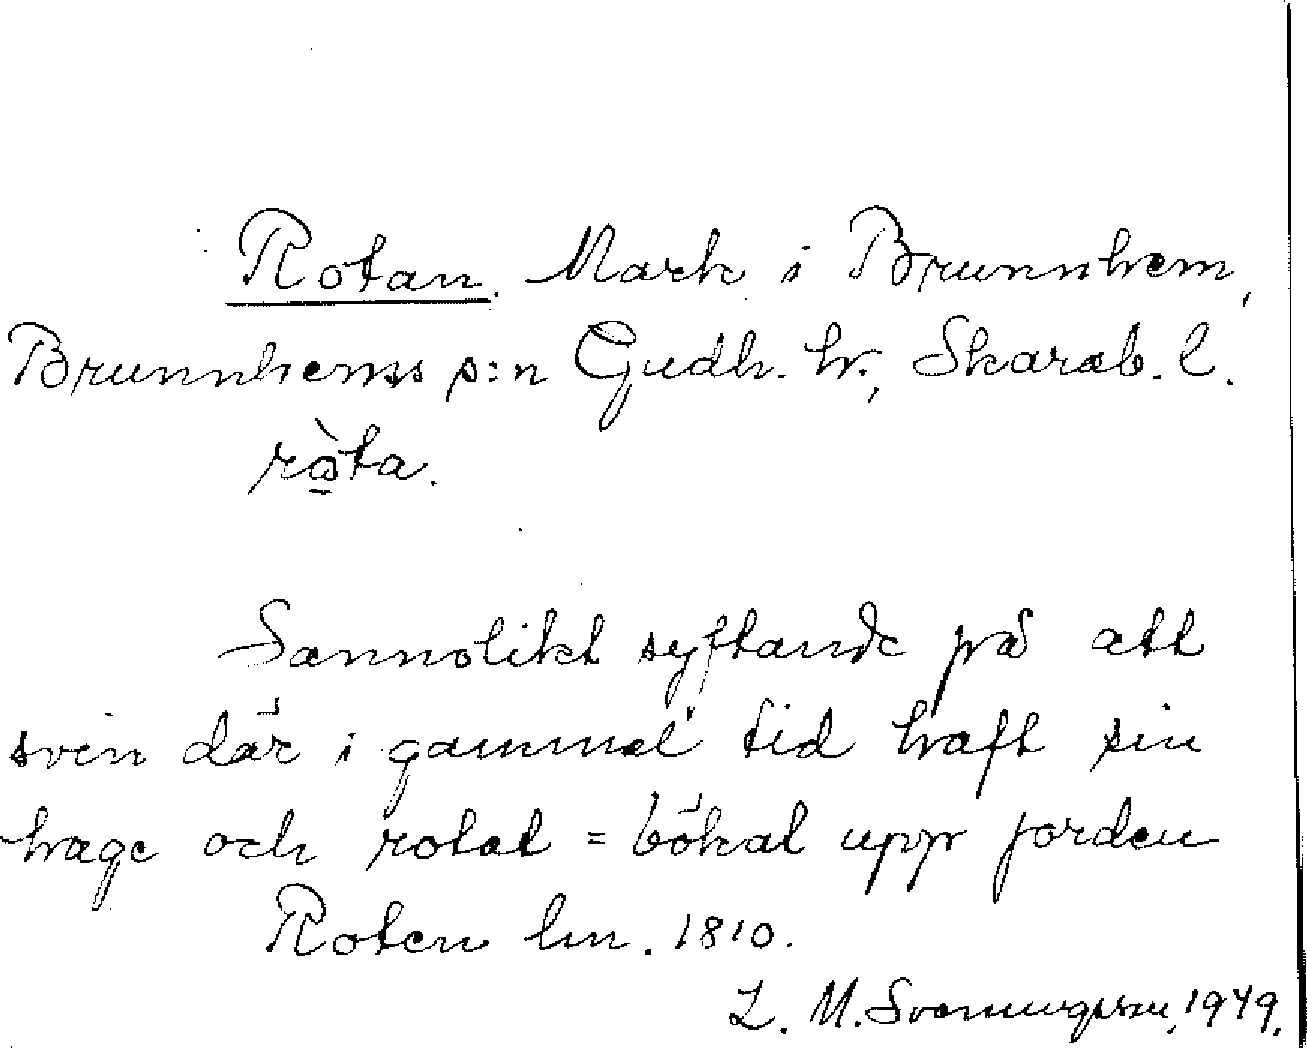 Rotan. Mark i Brunnhem,
Brunnhems s:n Gudh. hr., Skarab. l.
ròta.
Sannolikt syftande på att
svin där i gammal tid haft sin
hage och rotat = bökat upp jorden
Roten lm. 1810.
L. M. Svenungsson, 1949.